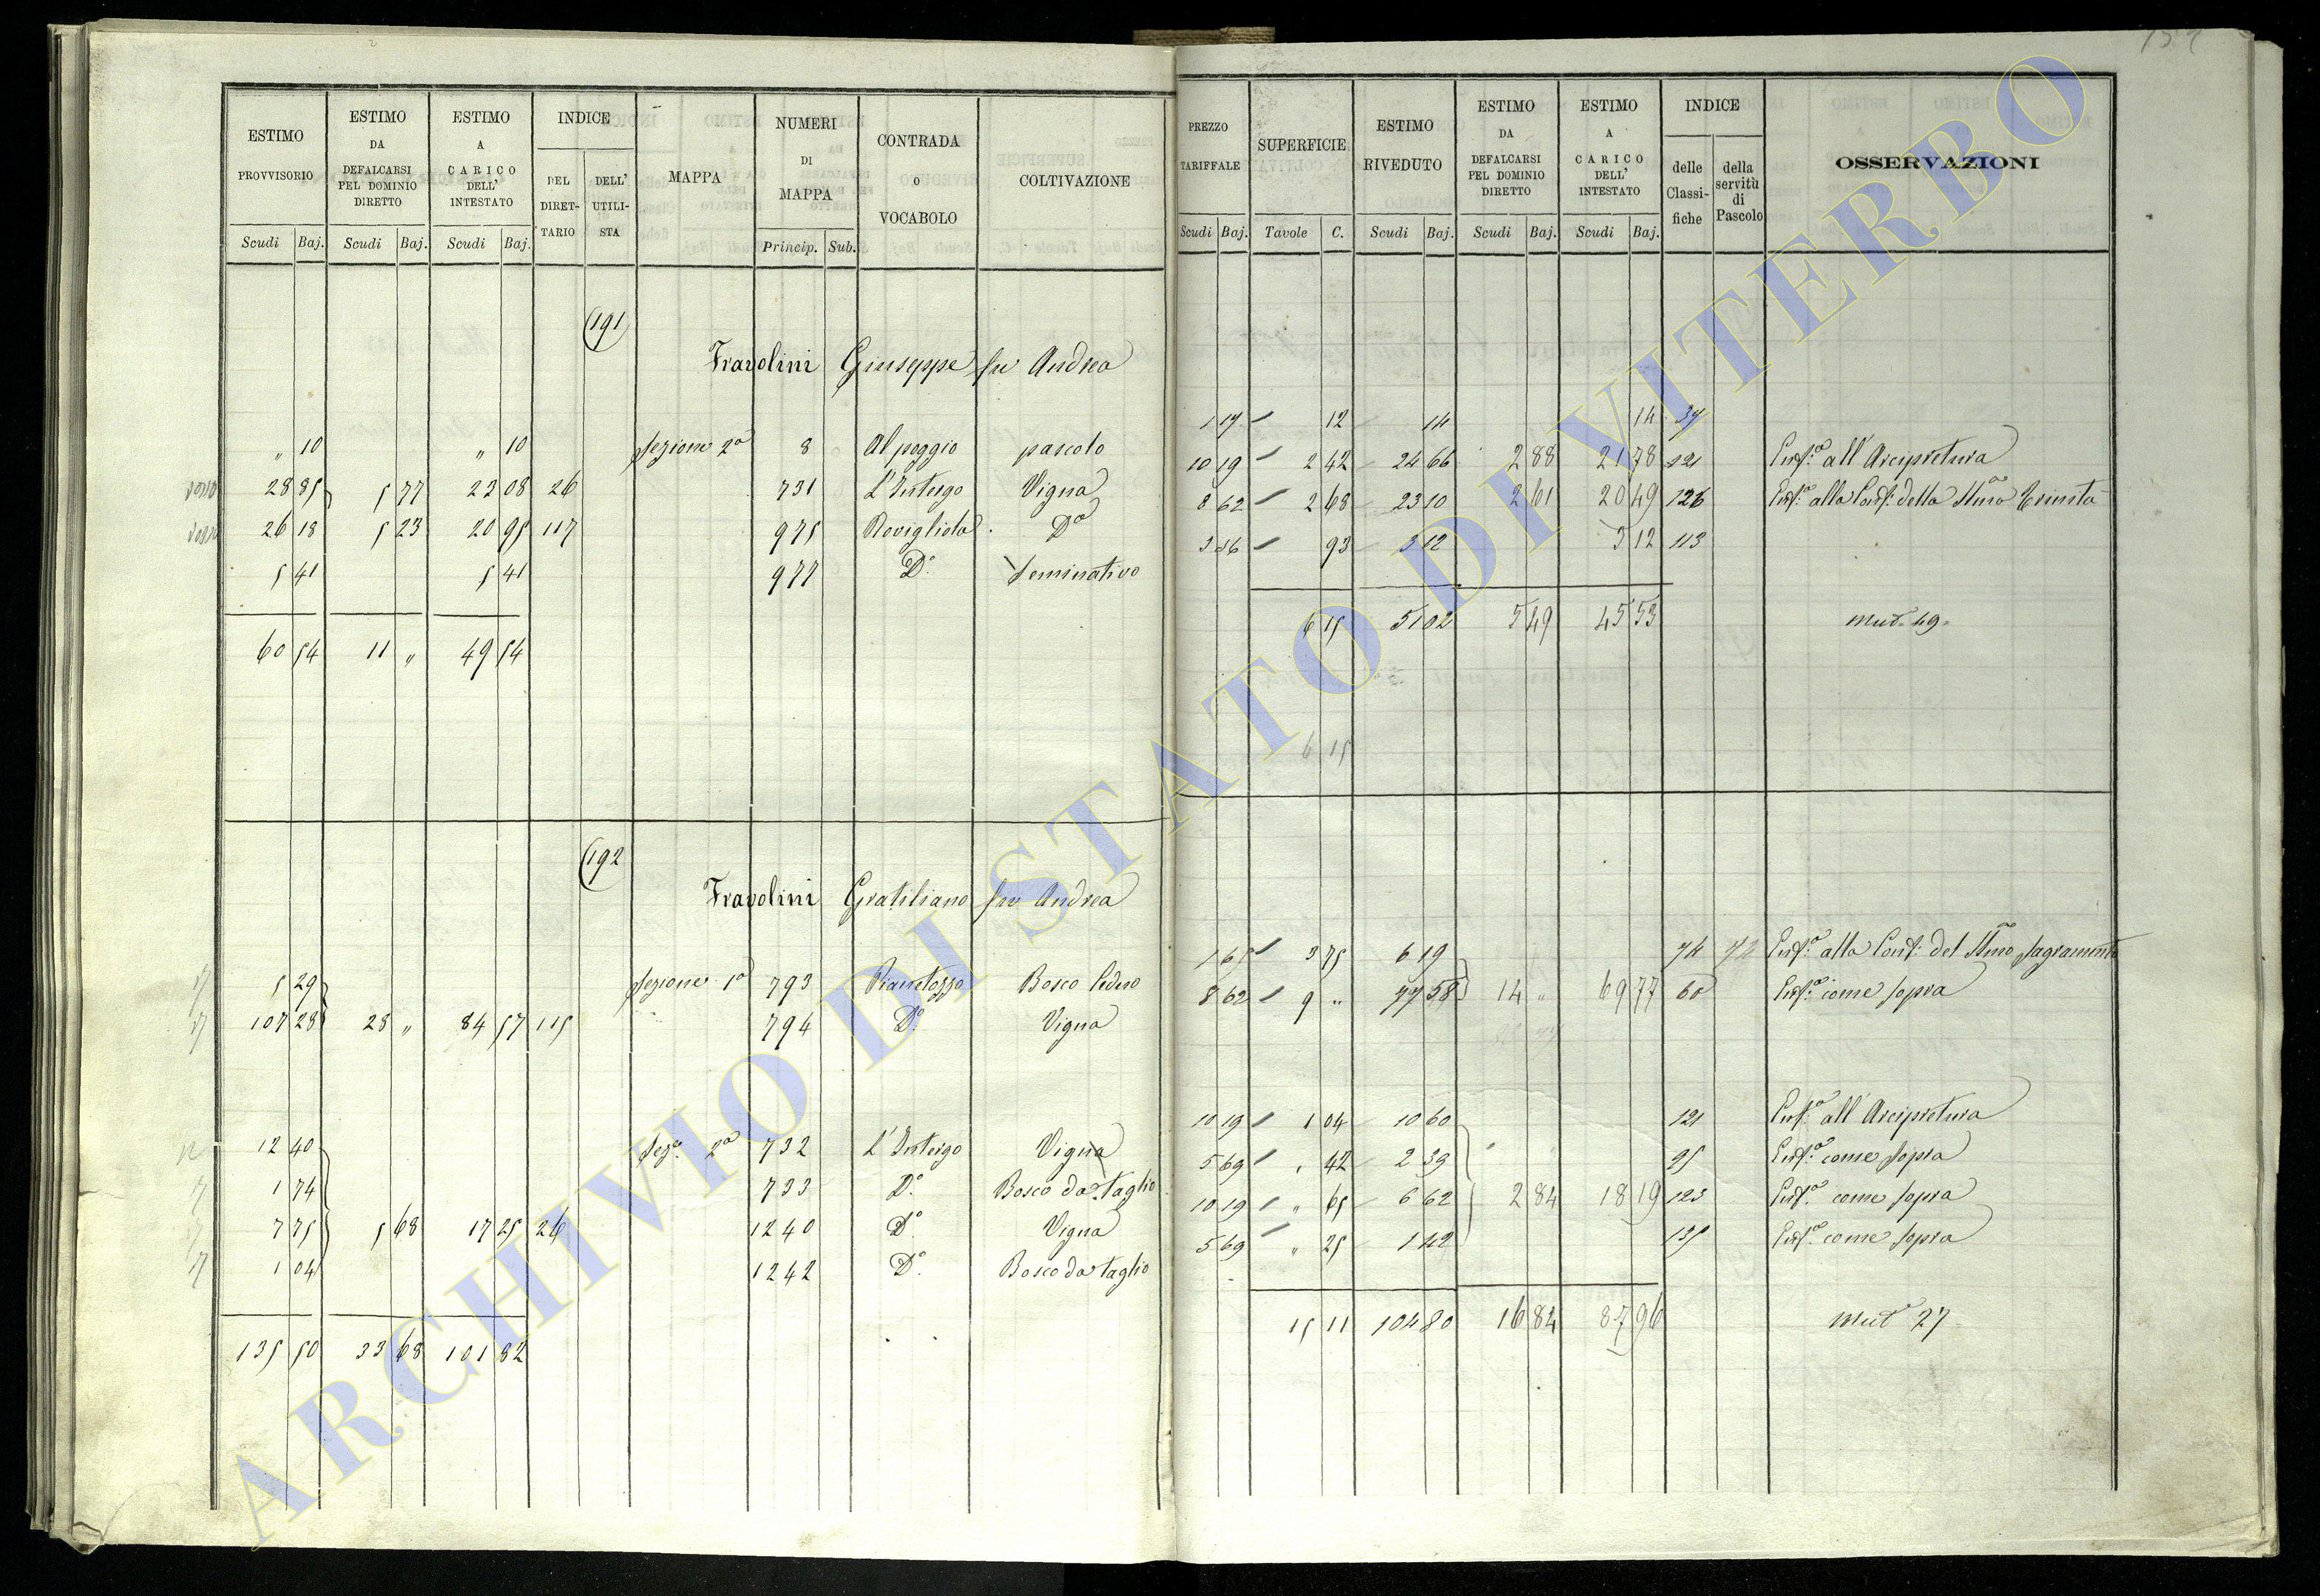 ESTIMO PROVVISORIO | ESTIMO DA DEFALCARSI PEL DOMINIO DIRETTO | ESTIMO A CARICO DELL' INTESTATO | INDICE | MAPPA | NUMERI DI MAPPA | CONTRADA O VOCABOLO | COLTIVAZIONE
DEL DIRETTARIO | DELL' UTILISTA
Scudi | Baj. | Scudi | Baj. | Scudi | Baj. | Princip. | Sub.
191
Fravolini Giuseppe fu Andrea
„ 10 | „ 10 | Sezione 2a | 8 | Al poggio | pascolo
28 85 | 5 77 | 23 08 | 26 | 731 | L'Intergo | Vigna
26 18 | 5 23 | 20 95 | 117 | 975 | Rovigliola | Da
5 41 | 5 41 | 977 | Do | Seminativo
60 54 | 11 „ | 49 54
192
Fravolini Gratiliano fu Andrea
5 29 | Sezione 1a | 793 | Pianetozzo | Bosco Ceduo
107 28 | 28 „ | 84 57 | 115 | 794 | Do | Vigna
12 40 | Seze 2a | 732 | L'Intergo | Vigna
1 74 | 733 | Do | Bosco da taglio
7 75 | 5 68 | 17 25 | 26 | 1240 | Do | Vigna
1 04 | 1242 | Do | Bosco da taglio
135 50 | 33 68 | 101 82
PREZZO TARIFFALE | SUPERFICIE | ESTIMO RIVEDUTO | ESTIMO DA DEFALCARSI PEL DOMINIO DIRETTO | ESTIMO A CARICO DELL' INTESTATO | INDICE | OSSERVAZIONI
delle Classifiche | della servitù di Pascolo
Scudi | Baj. | Tavole | C. | Scudi | Baj. | Scudi | Baj. | Scudi | Baj.
1 17 | 12 | 14 | 14 | 37
10 19 | 2 42 | 24 66 | 2 88 | 21 78 | 121 | Enfa all'Arcipretura
8 62 | 2 68 | 23 10 | 2 61 | 20 49 | 126 | Enfa alla Conf: della SSma Trinità
3 36 | 93 | 3 12 | 3 12 | 113
6 15 | 51 02 | 5 49 | 45 53 | Mut. 49.
6 15
1 65 | 3 75 | 6 19 | 74 | 72 | Enfa alla Conf: del SSmo Sagramento
8 62 | 9 „ | 77 58 | 14 „ | 69 77 | 60 | Enfa come sopra
10 19 | 1 04 | 10 60 | 121 | Enfa all'Arcipretura
5 69 | 42 | 2 39 | 95 | Enfa come sopra
10 19 | „ 65 | 6 62 | 2 84 | 18 19 | 123 | Enfa come sopra
5 69 | „ 25 | 1 42 | 135 | Enfa come sopra
15 11 | 104 80 | 16 84 | 87 96 | Mut. 27
ARCHIVIO DI STATO DI VITERBO